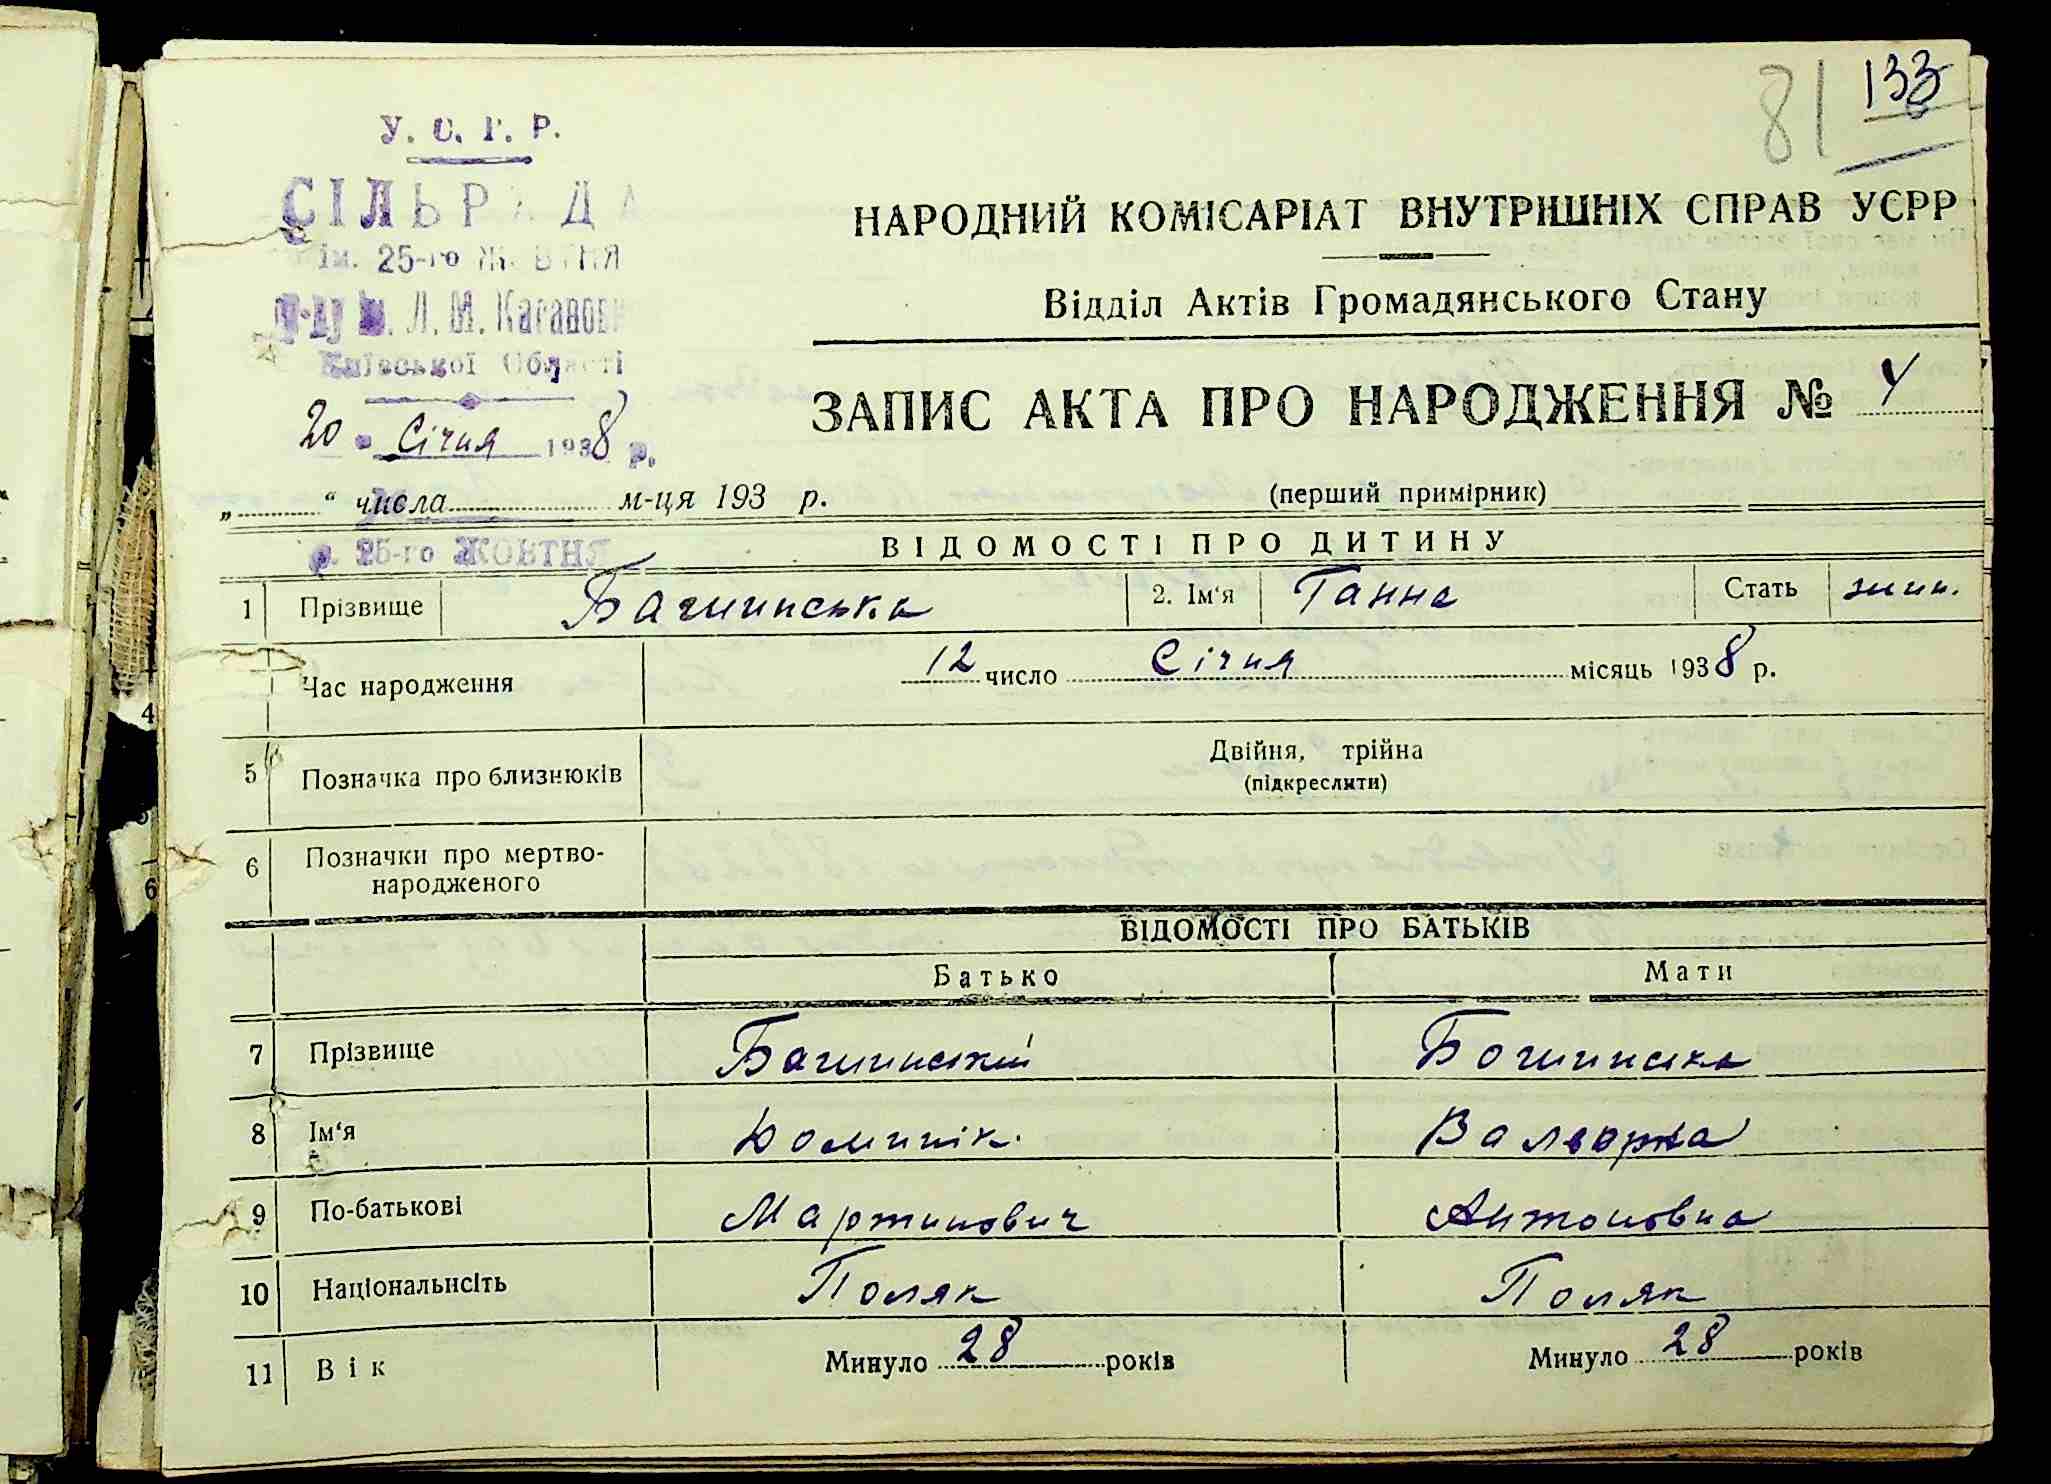 81 133
У. С. Р. Р.
СІЛЬРАДА
ім. 25-го ЖОВТНЯ
р-ну ім. Л. М. Каганови
Київської Області
20 Січня 1938 р.
с. 25-го ЖОВТНЯ
НАРОДНИЙ КОМІСАРІАТ ВНУТРІШНІХ СПРАВ УСРР
Відділ Актів Громадянського Стану
ЗАПИС АКТА ПРО НАРОДЖЕННЯ № 4
„ “ числа м-ця 193 р. (перший примірник)
ВІДОМОСТІ ПРО ДИТИНУ
1 Прізвище Багшинська 2. Ім'я Ганна Стать жин.
Час народження 12 число Січня місяць 1938 р.
5 Позначка про близнюків Двійня, трійна
(підкреслити)
6 Позначки про мертво-
народженого
ВІДОМОСТІ ПРО БАТЬКІВ
Батько Мати
7 Прізвище
8 Ім'я Доминік.
9 По-батькові Мартинович Антоновна
10 Національність Поляк Поляк
11 Вік Минуло 28 років Минуло 28 років